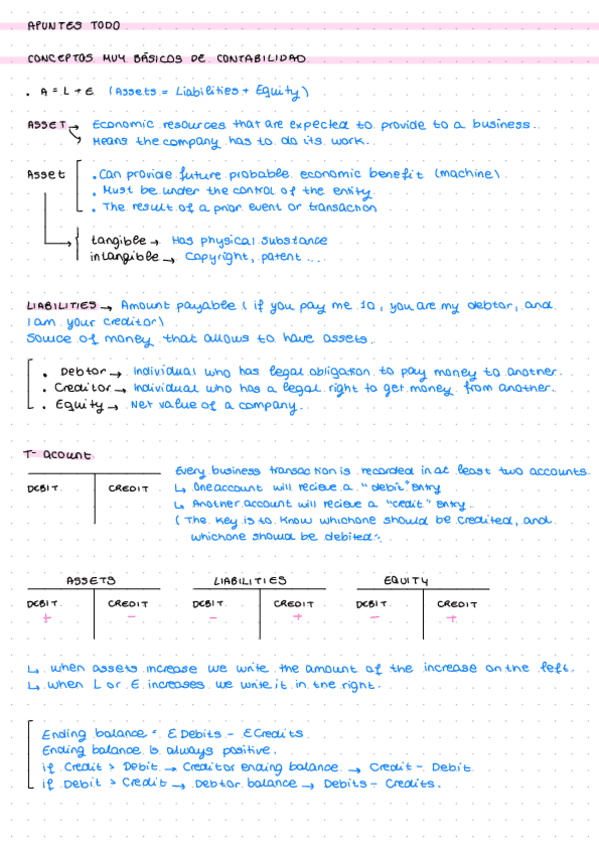 APUNTES TODO
CONCEPTOS MUY BÁSICOS DE CONTABILIDAD
. A = L + E (Assets = Liabilities + Equity)
ASSET → Economic resources that are expected to provide to a business.
→ Means the company has to do its work.
Asset
. Can provide future probable economic benefit (machine).
. Must be under the control of the entity.
. The result of a prior event or transaction
tangible → Has physical substance
intangible → Copyright, patent ...
LIABILITIES → Amount payable ( if you pay me 10, you are my debtor, and
I am your creditor)
Source of money that allows to have assets.
. Debtor → Individual who has legal obligation to pay money to another.
. Creditor → Individual who has a legal right to get money from another.
. Equity → Net value of a company.
T- acount
DEBIT CREDIT
Every business transaction is recorded in at least two accounts.
↳ One account will recieve a "debit" entry
↳ Another account will recieve a "credit" entry.
( The key is to know which one should be credited, and
which one should be debited.
ASSETS LIABILITIES EQUITY
DEBIT CREDIT DEBIT CREDIT DEBIT CREDIT
+ - - + - +
↳ when assets increase we write the amount of the increase on the left.
↳ when L or E increases we write it in the right.
Ending balance = Σ Debits - Σ Credits
Ending balance is always positive.
if Credit > Debit → Creditor ending balance → Credit - Debit
if Debit > Credit → Debtor balance → Debits - Credits.